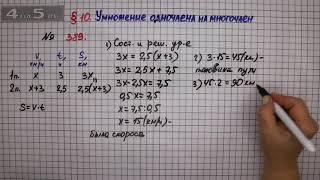 § 10. Умножение одночлена на многочлен
№ 389.
V, км/ч t, ч S, км
1п. x 3 3x
2п. x+3 2,5 2,5(x+3)
S=V·t
1) Сост. и реш. ур-е
3x = 2,5(x+3)
3x = 2,5x + 7,5
3x - 2,5x = 7,5
0,5x = 7,5
x = 7,5:0,5
x = 15 (км/ч)-
была скорость
2) 3·15=45(км)-
половина пути
3) 45·2 = 90 км